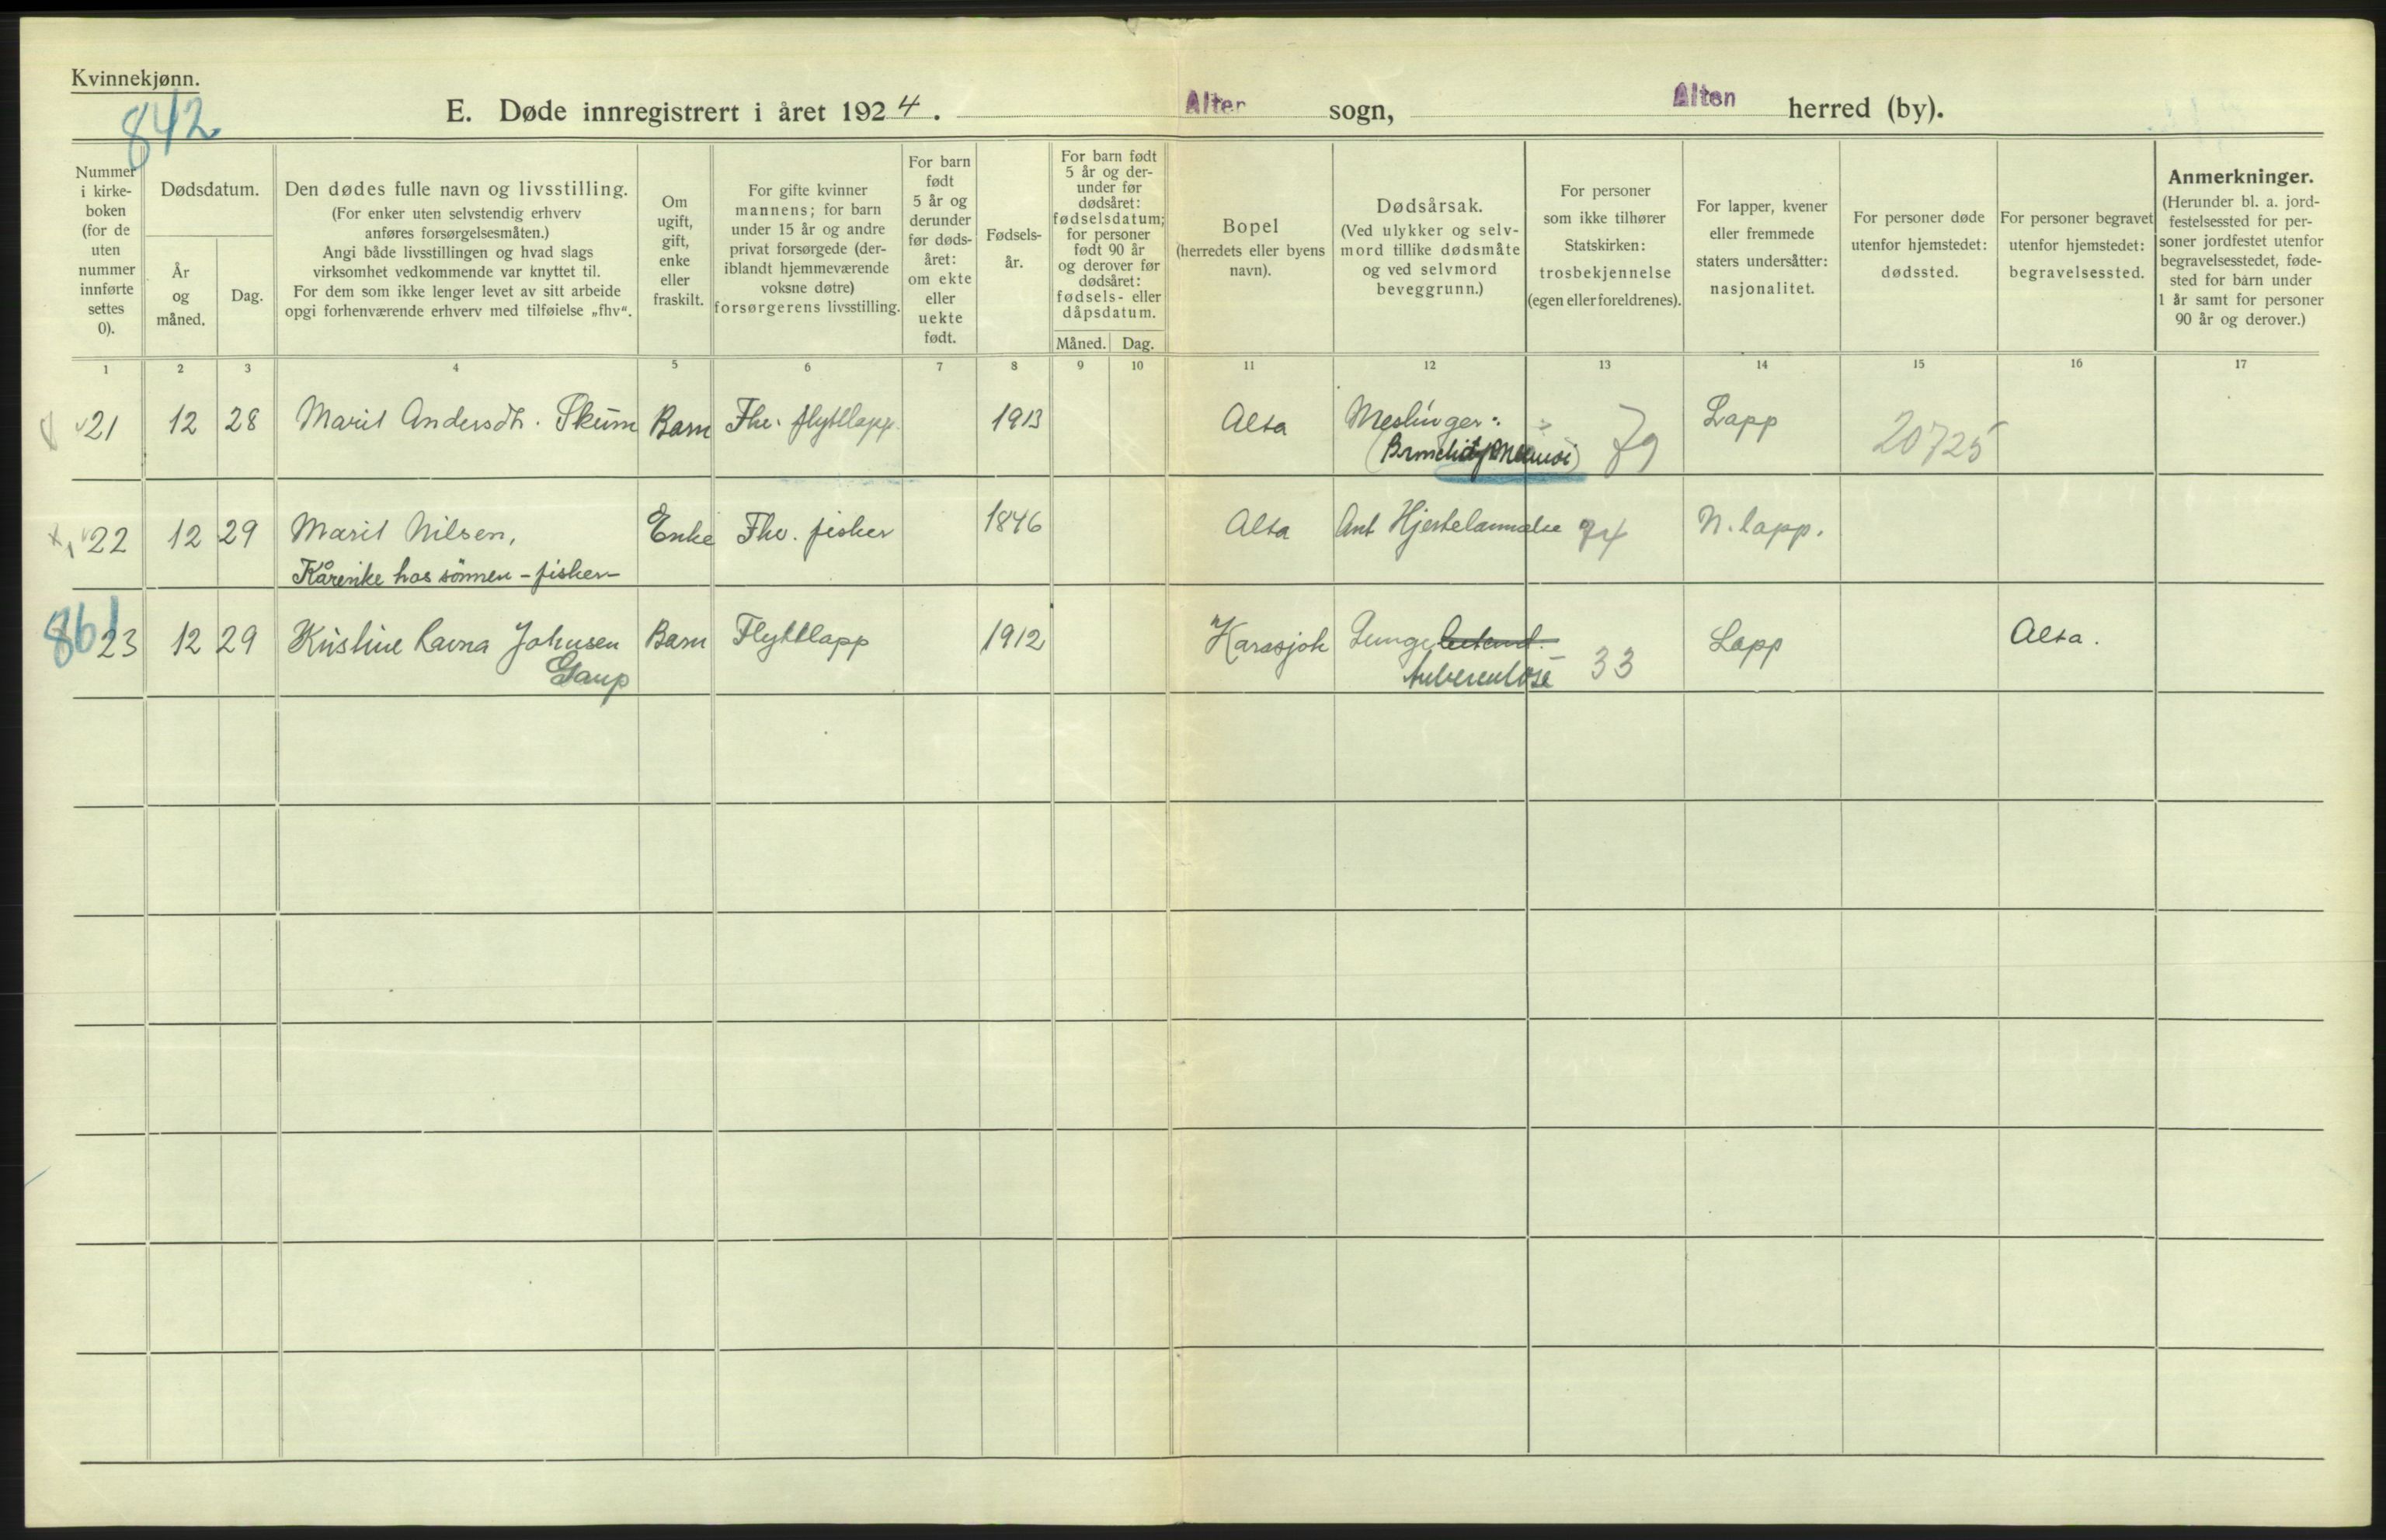 Kvinnekjønn.
842
E. Døde innregistrert i året 1924. Alten sogn, Alten herred (by).
Nummer
i kirke-
boken
(for de
uten
nummer
innførte
settes
0).
Dødsdatum.
År
og
måned.
Dag.
Den dødes fulle navn og livsstilling.
(For enker uten selvstendig erhverv
anføres forsørgelsesmåten.)
Angi både livsstillingen og hvad slags
virksomhet vedkommende var knyttet til.
For dem som ikke lenger levet av sitt arbeide
opgi forhenværende erhverv med tilføielse „fhv“.
Om
ugift,
gift,
enke
eller
fraskilt.
For gifte kvinner
mannens; for barn
under 15 år og andre
privat forsørgede (der-
iblandt hjemmeværende
voksne døtre)
forsørgerens livsstilling.
For barn
født
5 år og
derunder
før døds-
året:
om ekte
eller
uekte
født.
Fødsels-
år.
For barn født
5 år og der-
under før
dødsåret:
fødselsdatum;
for personer
født 90 år
og derover før
dødsåret:
fødsels- eller
dåpsdatum.
Måned. Dag.
Bopel
(herredets eller byens
navn).
Dødsårsak.
(Ved ulykker og selv-
mord tillike dødsmåte
og ved selvmord
beveggrunn.)
For personer
som ikke tilhører
Statskirken:
trosbekjennelse
(egen eller foreldrenes).
For lapper, kvener
eller fremmede
staters undersåtter:
nasjonalitet.
For personer døde
utenfor hjemstedet:
dødssted.
For personer begravet
utenfor hjemstedet:
begravelsessted.
Anmerkninger.
(Herunder bl. a. jord-
festelsessted for per-
soner jordfestet utenfor
begravelsesstedet, føde-
sted for barn under
1 år samt for personer
90 år og derover.)
1 2 3 4 5 6 7 8 9 10 11 12 13 14 15 16 17
8 21 12 28 Marit Andersdt. Skum Barn Fhv. flyttlapp 1913 Alta Meslinger: 79 Lapp 20725
22 12 29 Marit Nilsen, Enke Fhv. fisker 1846 Alta Ant Hjertelammelse 94 N. lapp.
Kårenke hos sönnen - fisker -
861 23 12 29 Kristine Ravna Johnsen Barn Flyttlapp 1912 Karasjok Lunge 33 Lapp Alta.
Gaup tuberculose